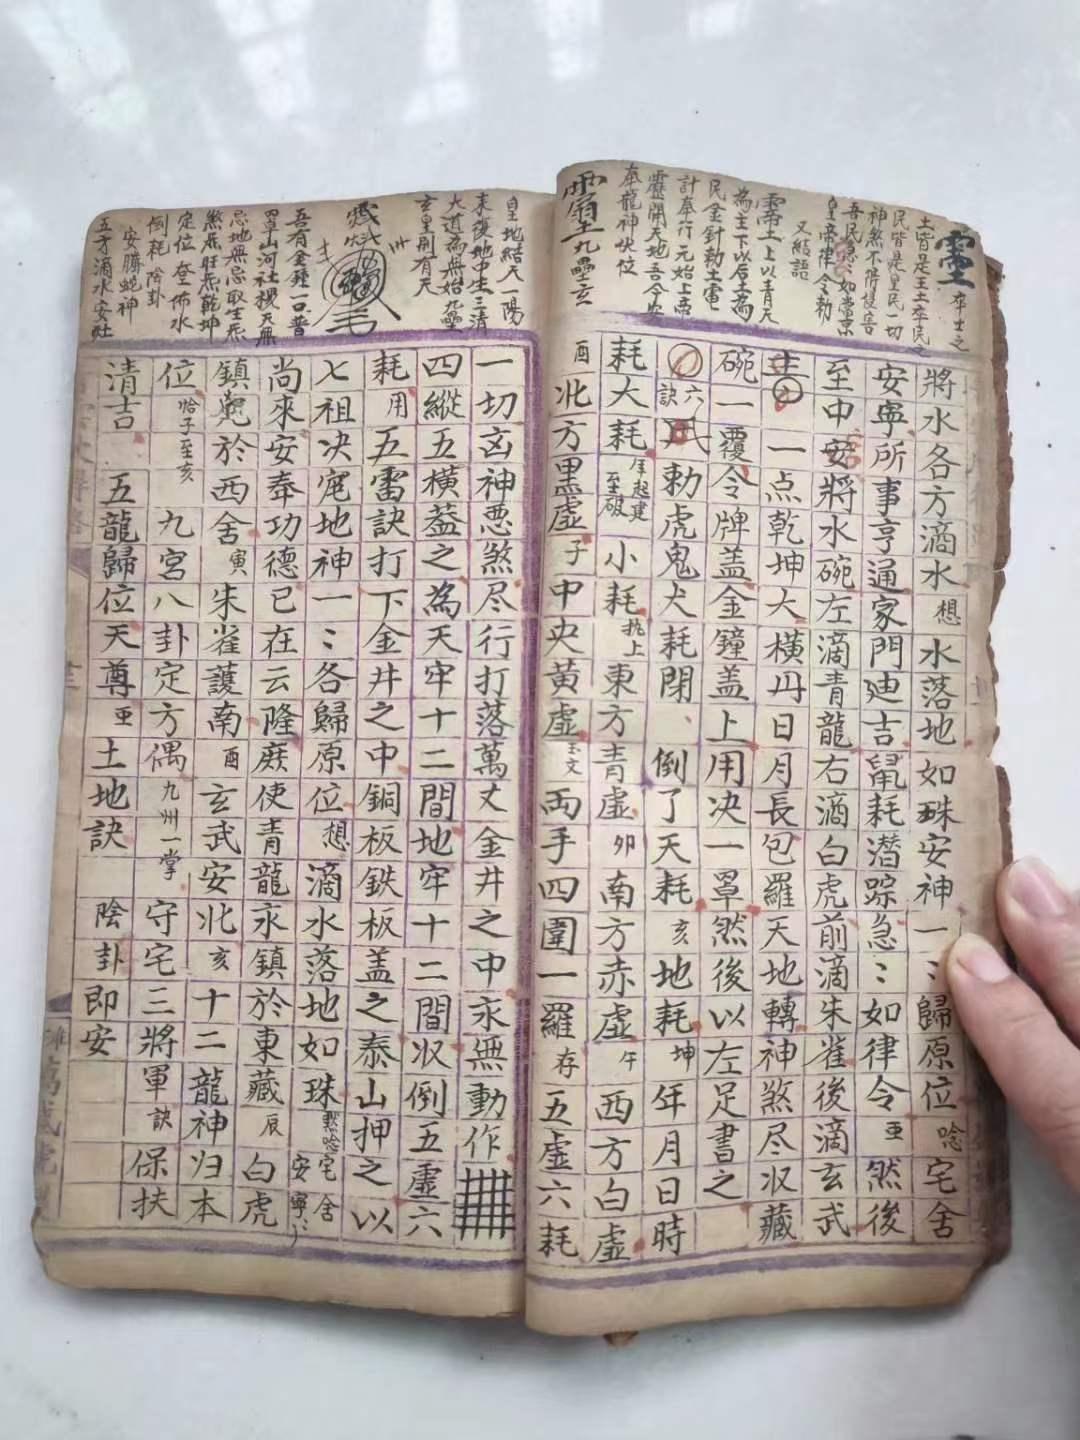 本士之
土皆是王土本民之
民皆是皇民一切
神煞不得侵害
吾民急〻如當京
皇帝律令勅
又結語
土上以青天
為主下以后土為
民金針勅土電
計奉行元始上帝
開天地吾今安
奉龍神伏位
九壘玄
將水各方滴水想水落地如珠安神一〻歸原位唸宅舍
安寧所事亨通家門廸吉鼠耗潜踪急〻如律令亞然後
至中安將水碗左滴青龍右滴白虎前滴朱雀後滴玄武
一点乾坤大橫丹日月長包羅天地轉神煞尽収藏
碗一覆令牌盖金鐘盖上用决一罩然後以左足書之
六訣勅虎鬼犬耗閉倒了天耗亥地耗坤年月日時
耗大耗年起建至破小耗執上東方青虛卯南方赤虛午西方白虛
酉北方黑虛子中央黄虛玉文両手四圍一羅存五虛六耗
皇地結天一陽
来後地中生三清
大道為無始九壘
玄皇荆有天
吾有金鍾一口普
罩山河社稷天無
忌地無忌取生炁
煞炁旺炁乾坤
定位 奎佈水
倒耗 陰卦
安騰蛇神
五方滴水安社
一切凶神悪煞尽行打落萬丈金井之中永無動作
四縱五橫蓋之為天牢十二間地牢十二間収倒五虛六
耗用五雷訣打下金井之中銅板鉄板盖之泰山押之以
七祖决寃地神一〻各歸原位想滴水落地如珠黙唸安宅寧舍
尚來安奉功德已在云隆庶使青龍永鎮於東藏辰白虎
鎮於西舍寅朱雀護南酉玄武安北亥十二龍神归本
位恰子至亥九宮八卦定方偶九州一掌守宅三將軍訣保扶
清吉 五龍歸位天尊亞土地訣 陰卦即安